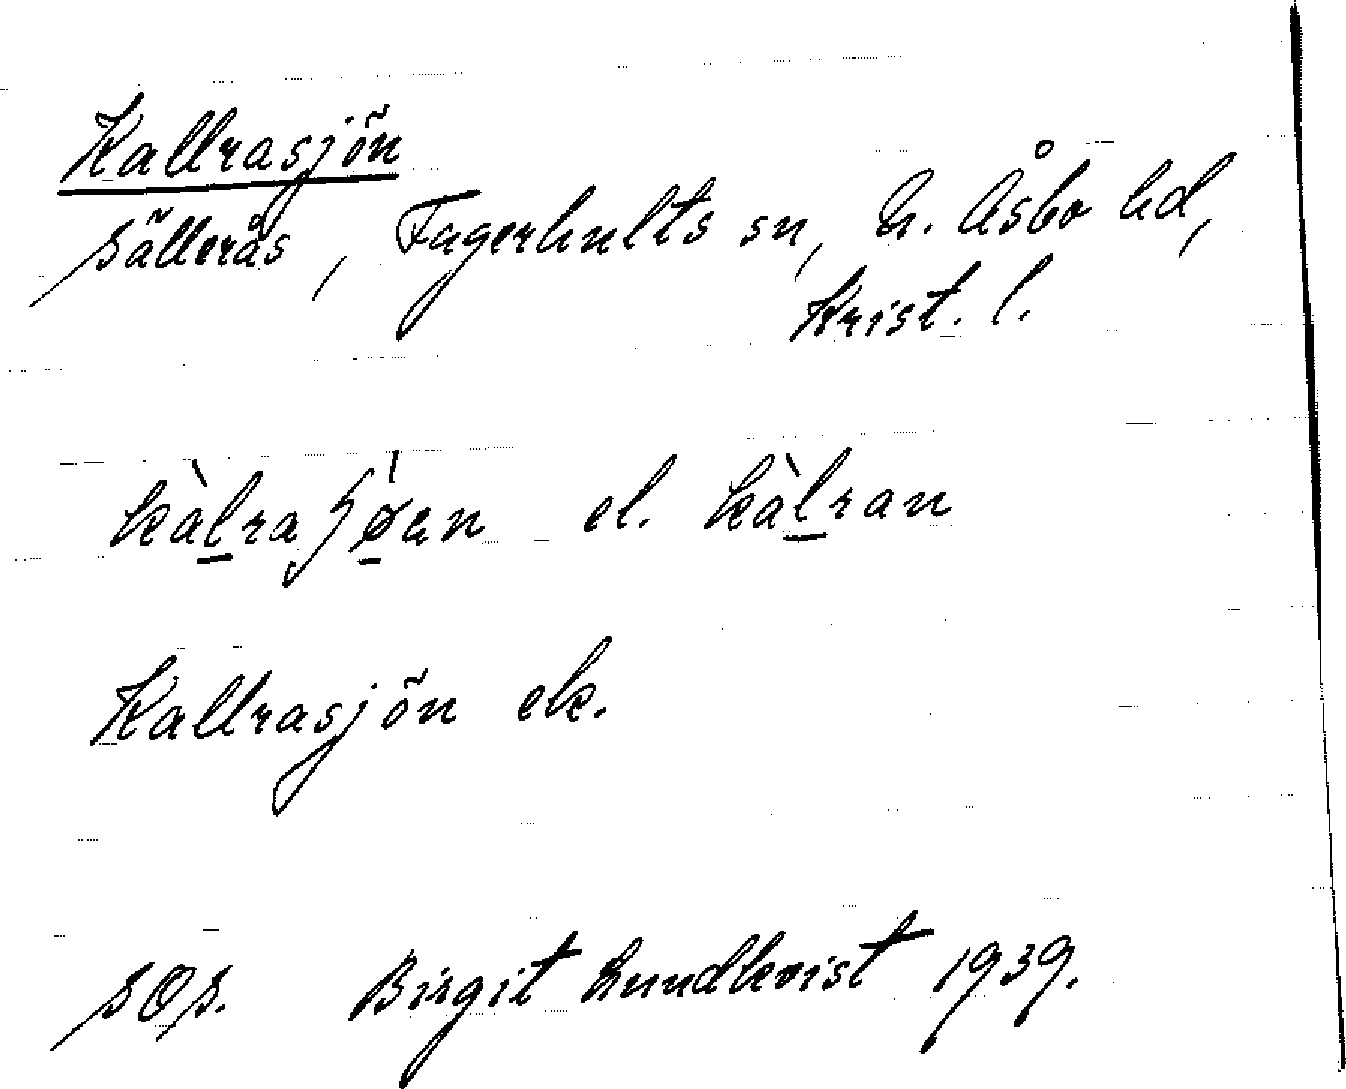 Kallrasjön
Sällerås, Fagerhults sn, N. Åsbo hd,
Krist. l.
kàlraʃǿən el. kàlran
Kallrasjön ek.
SOS. Birgit Lundkvist 1939.